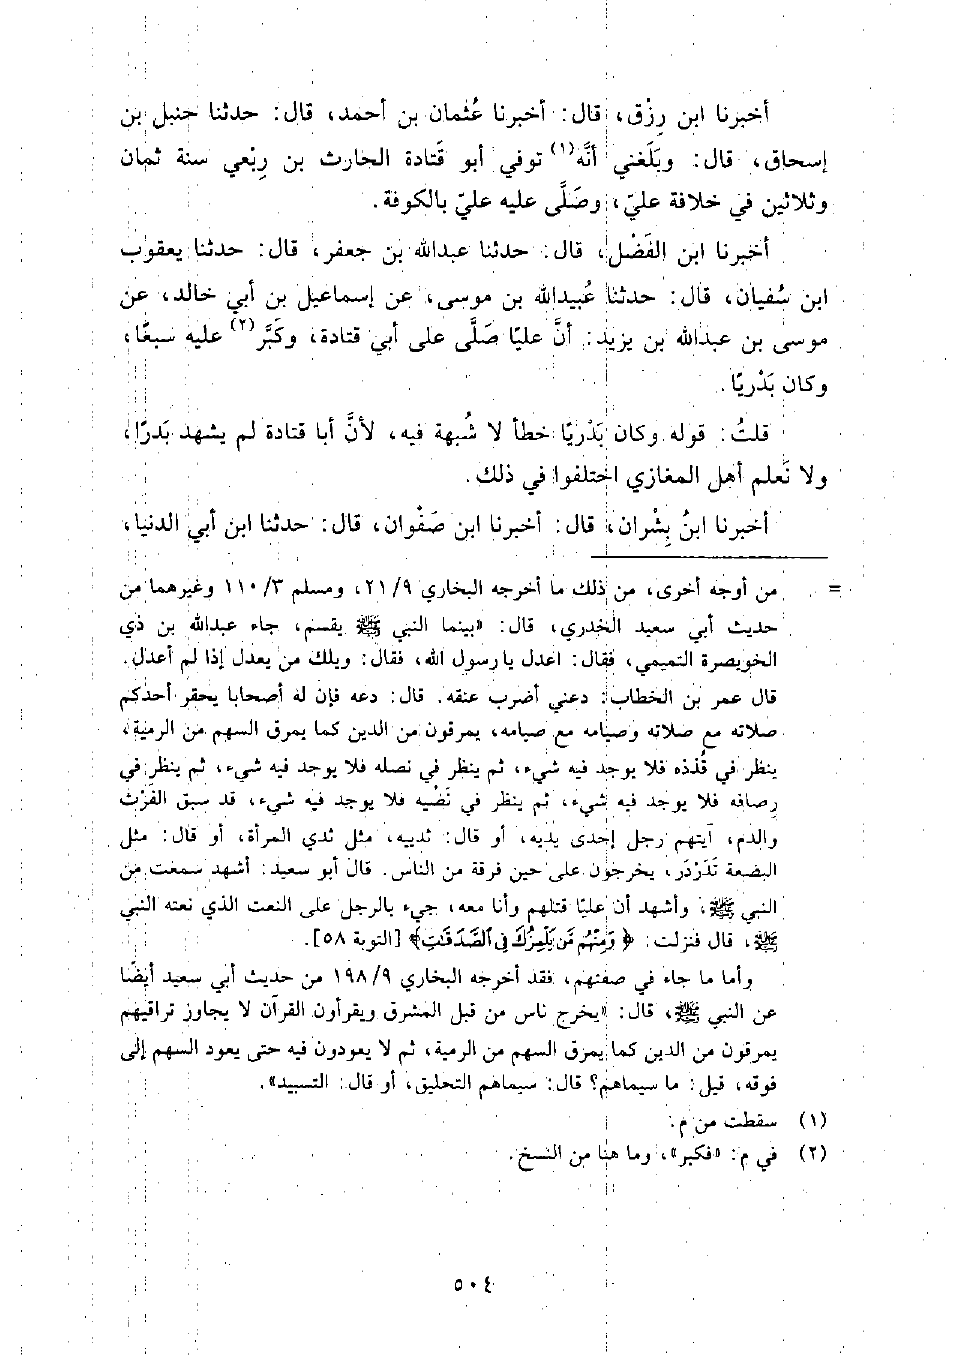 أخبرنا ابن رِزْق، قال: أخبرنا عُثمان بن أحمد، قال: حدثنا حنبل بن
إسحاق، قال: وبَلَغني أنَّه(١) توفي أبو قَتادة الحارث بن رِبْعي سنة ثمان
وثلاثين في خلافة عليّ، وصَلَّى عليه عليّ بالكوفة.
أخبرنا ابن الفَضْل، قال: حدثنا عبدالله بن جعفر، قال: حدثنا يعقوب
ابن سُفيان، قال: حدثنا عُبيدالله بن موسى، عن إسماعيل بن أبي خالد، عن
موسى بن عبدالله بن يزيد: أنَّ عليًا صَلَّى على أبي قتادة، وكَبَّر(٢) عليه سبعًا،
وكان بَدْريًا.
قلتُ: قوله وكان بَدْريًا خطأ لا شُبهة فيه، لأنَّ أبا قتادة لم يشهد بَدرًا،
ولا نَعلم أهل المغازي اختلفوا في ذلك.
أخبرنا ابنُ بِشْران، قال: أخبرنا ابن صَفْوان، قال: حدثنا ابن أبي الدنيا،
= من أوجه أخرى، من ذلك ما أخرجه البخاري ٩/ ٢١، ومسلم ٣/ ١١٠ وغيرهما من
حديث أبي سعيد الخدري، قال: «بينما النبي ﷺ يقسم، جاء عبدالله بن ذي
الخويصرة التميمي، فقال: اعدل يا رسول الله، فقال: ويلك من يعدل إذا لم أعدل.
قال عمر بن الخطاب: دعني أضرب عنقه. قال: دعه فإن له أصحابا يحقر أحدكم
صلاته مع صلاته وصيامه مع صيامه، يمرقون من الدين كما يمرق السهم من الرمية،
ينظر في قُذذه فلا يوجد فيه شيء، ثم ينظر في نصله فلا يوجد فيه شيء، ثم ينظر في
رِصافه فلا يوجد فيه شيء، ثم ينظر في نَضْيه فلا يوجد فيه شيء، قد سبق الفَرْث
والدم، آيتهم رجل إحدى يديه، أو قال: ثدييه، مثل ثدي المرأة، أو قال: مثل
البضعة تَدَرْدَر، يخرجون على حين فرقة من الناس. قال أبو سعيد: أشهد سمعت من
النبي ﷺ، وأشهد أن عليًا قتلهم وأنا معه، جيء بالرجل على النعت الذي نعته النبي
ﷺ، قال فنزلت: ﴿وَمِنْهُم مَّن يَلْمِزُكَ فِي ٱلصَّدَقَٰتِ﴾ [التوبة ٥٨].
وأما ما جاء في صفتهم، فقد أخرجه البخاري ٩/ ١٩٨ من حديث أبي سعيد أيضًا
عن النبي ﷺ، قال: «يخرج ناس من قبل المشرق ويقرأون القرآن لا يجاوز تراقيهم
يمرقون من الدين كما يمرق السهم من الرمية، ثم لا يعودون فيه حتى يعود السهم إلى
فوقه، قيل: ما سيماهم؟ قال: سيماهم التحليق، أو قال: التسبيد».
(١) سقطت من م.
(٢) في م: «فكبر»، وما هنا من النسخ.
٥٠٤